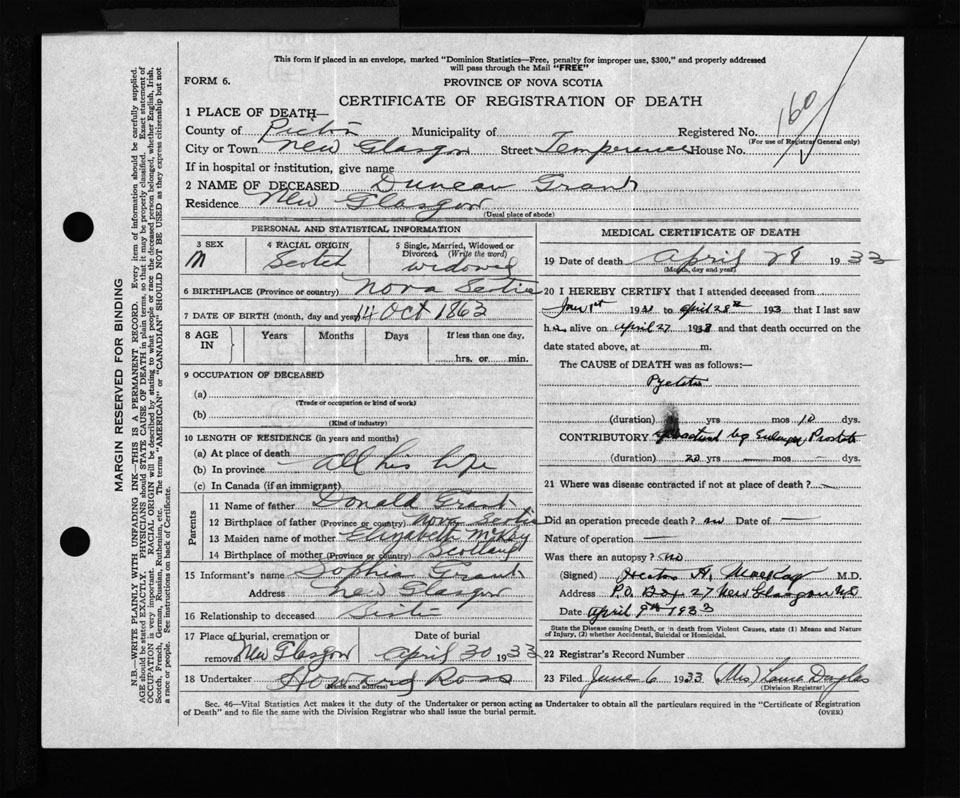 This form if placed in an envelope, marked "Dominion Statistics—Free, penalty for improper use, $300," and properly addressed
will pass through the Mail "FREE"
FORM 6.
PROVINCE OF NOVA SCOTIA
CERTIFICATE OF REGISTRATION OF DEATH
160
1 PLACE OF DEATH—
County of Pictou Municipality of Registered No.
(For use of Registrar General only)
City or Town New Glasgow Street Temperence House No.
If in hospital or institution, give name
2 NAME OF DECEASED Duncan Grant
Residence New Glasgow
(Usual place of abode)
PERSONAL AND STATISTICAL INFORMATION
3 SEX
M
4 RACIAL ORIGIN
Scotch
5 Single, Married, Widowed or
Divorced (Write the word)
widowed
6 BIRTHPLACE (Province or country) Nova Scotia
7 DATE OF BIRTH (month, day and year) 14 Oct 1863
8 AGE
IN
Years Months Days If less than one day,
hrs. or min.
9 OCCUPATION OF DECEASED
(a)
(Trade or occupation or kind of work)
(b)
(Kind of industry)
10 LENGTH OF RESIDENCE (in years and months)
(a) At place of death
(b) In province all his life
(c) In Canada (if an immigrant)
Parents
11 Name of father Donald Grant
12 Birthplace of father (Province or country) Nova Scotia
13 Maiden name of mother Elizabeth
14 Birthplace of mother (Province or country) Scotland
15 Informant's name Sophia Grant
Address New Glasgow
16 Relationship to deceased Sister
17 Place of burial, cremation or
removal New Glasgow
Date of burial
April 30 1933
18 Undertaker Howard Ross
(Name and address)
MEDICAL CERTIFICATE OF DEATH
19 Date of death April 28 1933
(Month, day and year)
20 I HEREBY CERTIFY that I attended deceased from
Jan 1st 193 to April 28th 193 that I last saw
h alive on April 27 193 and that death occurred on
date stated above, at m.
The CAUSE of DEATH was as follows:—
Pyelitis
(duration) yrs mos 10 dys.
CONTRIBUTORY by Enlarged Prostate
(duration) 20 yrs — mos — dys.
21 Where was disease contracted if not at place of death?
Did an operation precede death? no Date of —
Nature of operation —
Was there an autopsy? no
(Signed) H. MacKay M.D.
Address P.O. Box 27 New Glasgow NS
Date April 9th 1933
State the Disease causing Death, or in death from Violent Causes, state (1) Means and Nature
of Injury, (2) whether Accidental, Suicidal or Homicidal.
22 Registrar's Record Number
23 Filed June 6 1933 (Mrs)
(Division Registrar)
Sec. 46—Vital Statistics Act makes it the duty of the Undertaker or person acting as Undertaker to obtain all the particulars required in the "Certificate of Registration
of Death" and to file the same with the Division Registrar who shall issue the burial permit. (OVER)
MARGIN RESERVED FOR BINDING
N.B.—WRITE PLAINLY WITH UNFADING INK—THIS IS A PERMANENT RECORD. Every item of information should be carefully supplied.
AGE should be stated EXACTLY. PHYSICIANS should STATE CAUSE OF DEATH in plain terms, so that it may be properly classified. Exact statement of
OCCUPATION is very important. RACIAL ORIGIN will be described by stating to what people or race the deceased person belonged, whether English, Irish,
Scotch, French, German, Russian, Ruthenian, etc. The terms "AMERICAN" or "CANADIAN" SHOULD NOT BE USED as they express citizenship but not
a race or people. See instructions on back of Certificate.